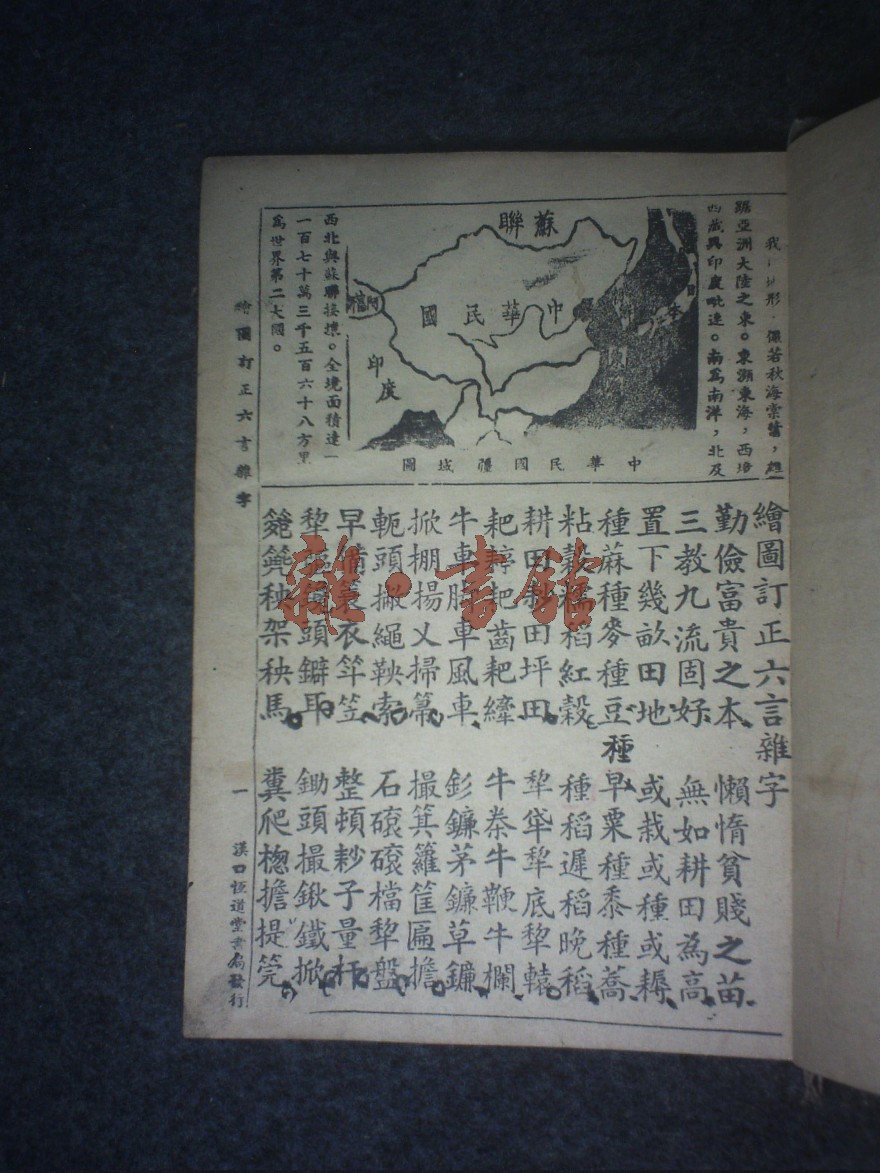 我 形 儼若秋海棠葉，雄
踞亞洲大陸之東。東瀕東海，西
西藏與印度毗連。南爲南洋，北及
蘇聯
中華民國
日本
印度
中華民國疆域圖
西北與蘇聯接壤。全境面積達一
一百七十萬三千五百六十八方里
爲世界第二大國。
繪圖訂正六言雜字
勤儉富貴之本 懶惰貧賤之苗
三教九流固好 無如耕田為高
置下幾畝田地 或栽或種或耨
種蔴種麥種豆 種早粟種黍種蕎
粘穀糯稻紅穀 種稻遲稻晚稻
耕田耖田坪田 犁 犁底犁轅
耙 耙齒耙縴 牛桊牛鞭牛欄
牛車腳車風車 鎌茅鎌草鎌
掀棚揚叉掃箒 撮箕籮筐匾擔
軛頭撇繩鞅索 石磙磙檔犁盤
早備蓑衣笠 整頓耖子量杆
犁 頭鐴耳 鋤頭撮鍬鐵掀
秧架秧馬 糞爬 擔提筦
繪圖訂正六言雜字
一
漢口恆道堂書局發行
雜·書館